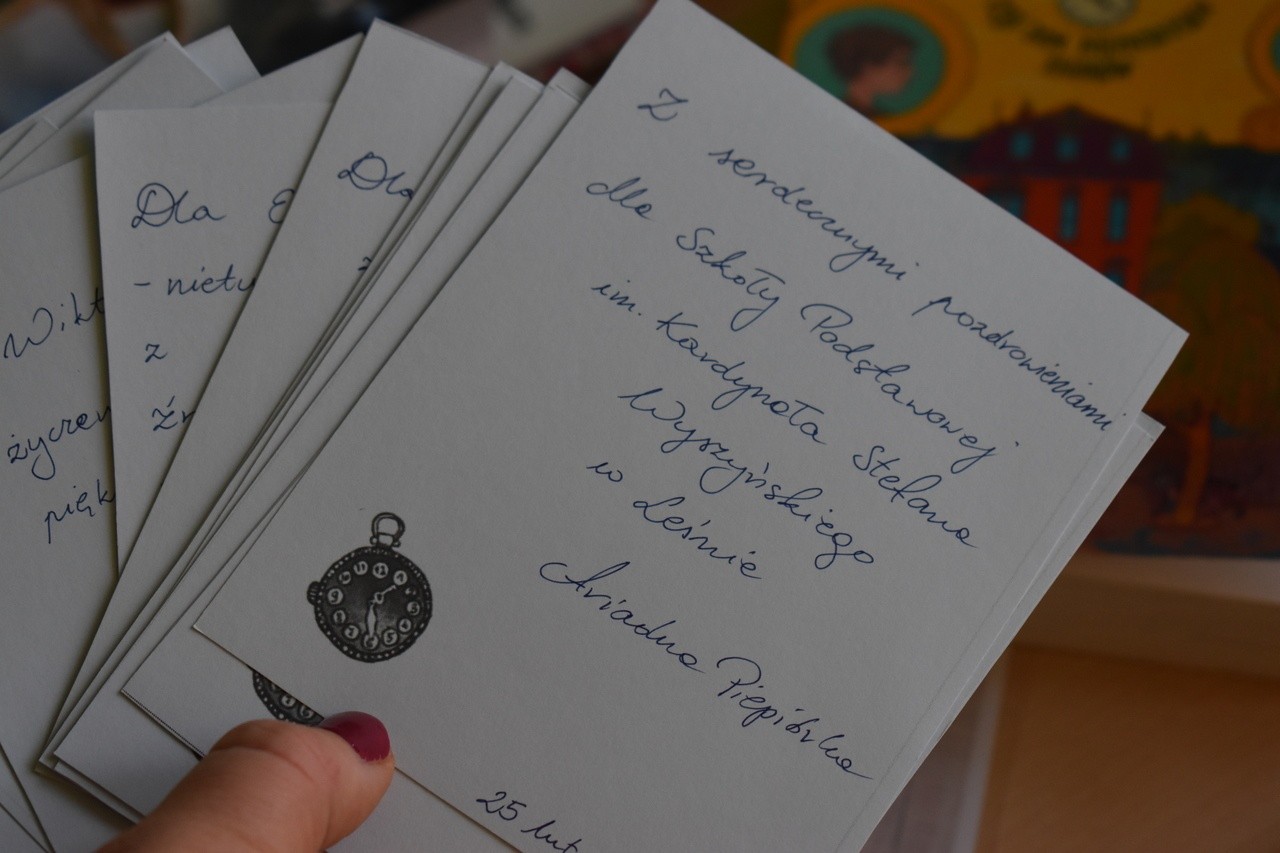 Z
serdecznymi pozdrowieniami
dla Szkoły Podstawowej
im. Kardynała Stefana
Wyszyńskiego
w Leśnie
Ariadna Piepiórka
25 lut
Dla
z
Dla
- nietu
z
Wikt
życzen
pięk